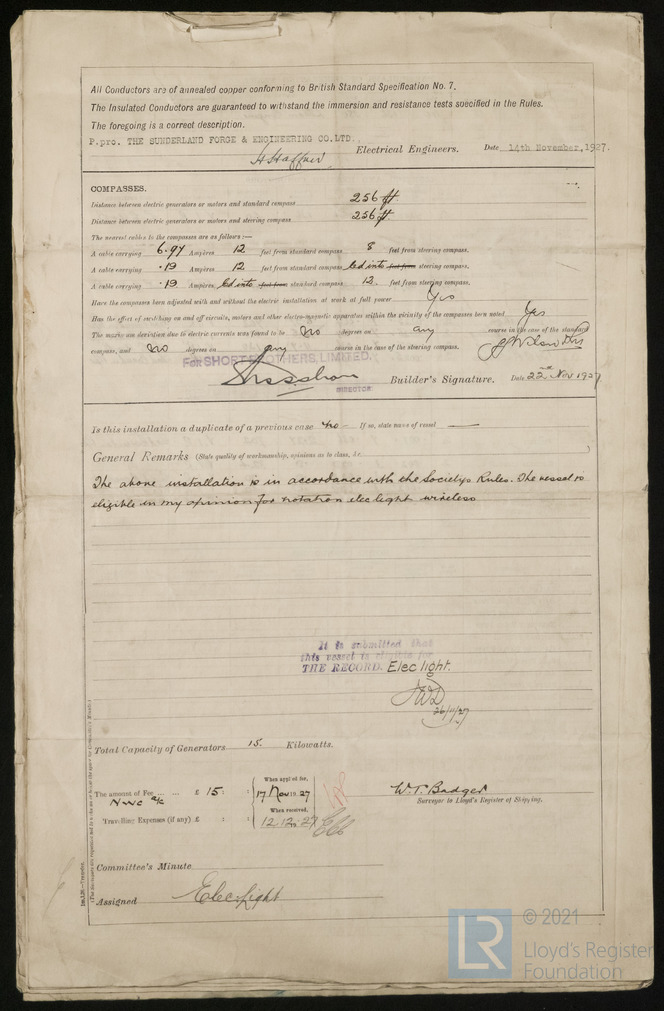 All Conductors are of annealed copper conforming to British Standard Specification No. 7.
The Insulated Conductors are guaranteed to withstand the immersion and resistance tests specified in the Rules.
The foregoing is a correct description.
P.pro. THE SUNDERLAND FORGE & ENGINEERING CO. LTD.,
Electrical Engineers. Date 14th November, 1927.
COMPASSES.
Distance between electric generators or motors and standard compass 256 ft.
Distance between electric generators or motors and steering compass 256 ft.
The nearest cables to the compasses are as follows:—
A cable carrying 6.97 Ampères 12 feet from standard compass 8 feet from steering compass.
A cable carrying .19 Ampères 12 feet from standard compass led into feet from steering compass.
A cable carrying .19 Ampères led into feet from standard compass 12. feet from steering compass.
Have the compasses been adjusted with and without the electric installation at work at full power Yes
Has the effect of switching on and off circuits, motors and other electro-magnetic apparatus within the vicinity of the compasses been noted Yes
The maximum deviation due to electric currents was found to be no degrees on any course in the case of the standard
compass, and no degrees on any course in the case of the steering compass.
FOR SHORT BROTHERS, LIMITED.
DIRECTOR
Builder's Signature. Date 22nd Nov 1927
Is this installation a duplicate of a previous case no — If so, state name of vessel —
General Remarks (State quality of workmanship, opinions as to class, &c.)
The above installation is in accordance with the Society's Rules. The vessel is
eligible in my opinion for notation elec light wireless
It is submitted that
this vessel is eligible for
THE RECORD. Elec light.
26/11/27
Total Capacity of Generators 15. Kilowatts.
The amount of Fee ... ... £ 15 : :
Nwc a/c
When applied for,
17 Nov 19 27
When received,
12.12.1927
Travelling Expenses (if any) £ : :
W. T. Badger
Surveyor to Lloyd's Register of Shipping.
Committee's Minute
Assigned Elec. Light
© 2021
LR
Lloyd's Register
Foundation